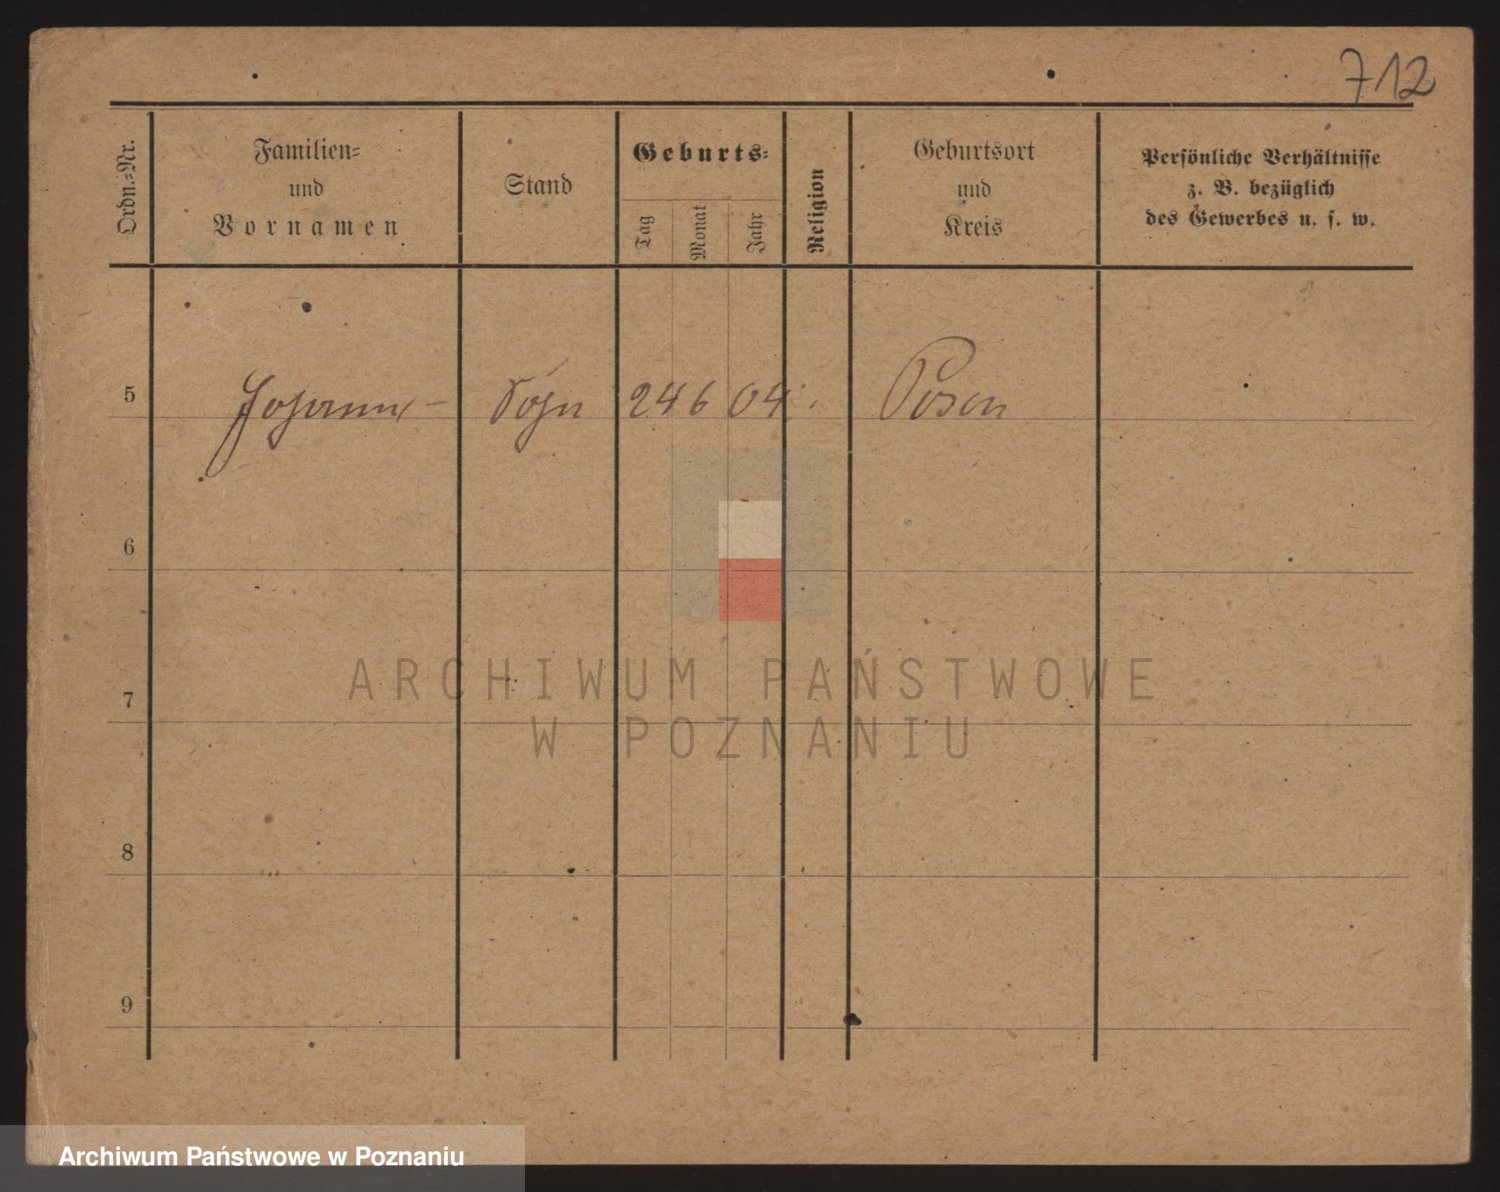 712
Ordn.-Nr.
Familien-
und
Vornamen
Stand
Geburts-
Tag
Monat
Jahr
Religion
Geburtsort
und
Kreis
Persönliche Verhältnisse
z. B. bezüglich
des Gewerbes u. s. w.
5 Johann - Sohn 24 6 04. Posen
6
7
8
9
ARCHIWUM PAŃSTWOWE
W POZNANIU
Archiwum Państwowe w Poznaniu